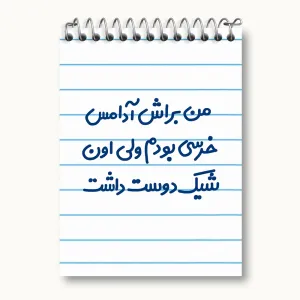 من براش آدامس
خرسی بودم ولی اون
شیک دوست داشت